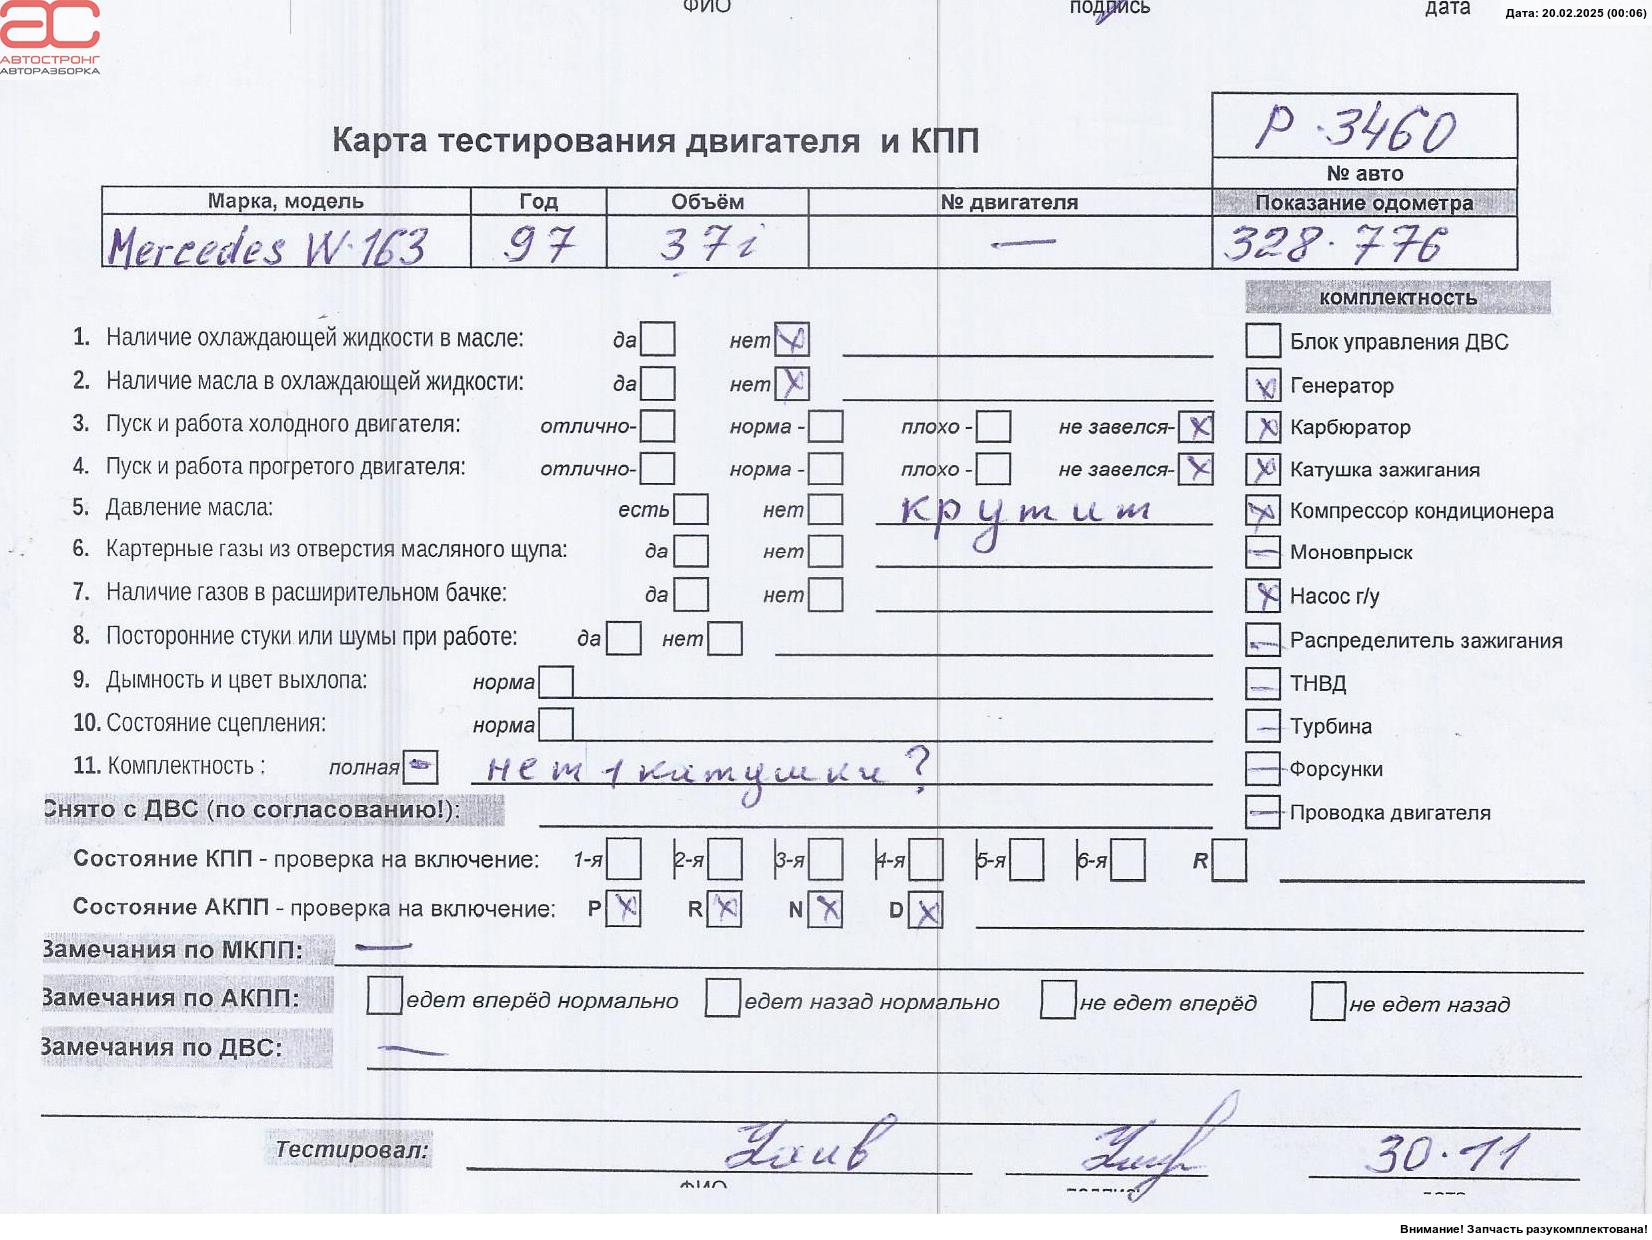 ФИО подпись дата
Дата: 20.02.2025 (00:06)
АС
АВТОСТРОНГ
АВТОРАЗБОРКА
Р-3460
Карта тестирования двигателя и КПП
№ авто
Марка, модель Год Объём № двигателя Показание одометра
Mercedes W-163 97 37i — 328.776
комплектность
1. Наличие охлаждающей жидкости в масле: да нет Х Блок управления ДВС
2. Наличие масла в охлаждающей жидкости: да нет Х Х Генератор
3. Пуск и работа холодного двигателя: отлично- норма - плохо - не завелся- Х Х Карбюратор
4. Пуск и работа прогретого двигателя: отлично- норма - плохо - не завелся- Х Х Катушка зажигания
5. Давление масла: есть нет крутит Х Компрессор кондиционера
6. Картерные газы из отверстия масляного щупа: да нет — Моновпрыск
7. Наличие газов в расширительном бачке: да нет Х Насос г/у
8. Посторонние стуки или шумы при работе: да нет — Распределитель зажигания
9. Дымность и цвет выхлопа: норма — ТНВД
10. Состояние сцепления: норма — Турбина
11. Комплектность : полная — нет 1 катушки ? — Форсунки
Снято с ДВС (по согласованию!): — Проводка двигателя
Состояние КПП - проверка на включение: 1-я 2-я 3-я 4-я 5-я 6-я R
Состояние АКПП - проверка на включение: P Х R Х N Х D Х
Замечания по МКПП: —
Замечания по АКПП: едет вперёд нормально едет назад нормально не едет вперёд не едет назад
Замечания по ДВС: —
Тестировал: 30.11
ФИО подпись дата
Внимание! Запчасть разукомплектована!